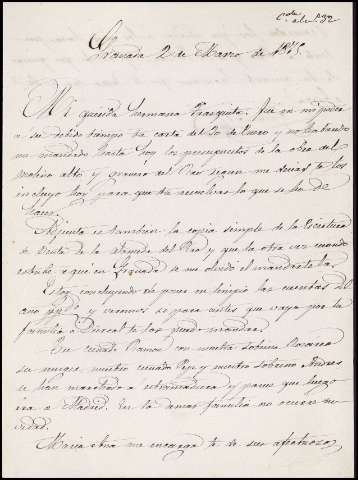 Granada 2 de Marzo de 1875.
Mi querida hermana Frasquita: fue en mi poder
a su debido tiempo tu carta del 20 de Enero y no habiendo
mandado hasta hoy los presupuestos de la obra del
molino alto y granero del segun me decias te los
incluyo hoy para que tu resuelvas lo que se ha de
hacer.
Adjunta es tambien la copia simple de la Escritura
de Venta de la Alameda del Rao, y que la otra vez cuando
estube aquí en Granada se me olvidó el mandartela.
Estoy concluyendo de poner en limpio las cuentas del
año ppdo y veremos si para antes que vaya por la
familia a Durcal te las puedo mandar.
Tu cuñado Ramon con nuestra sobrina Rosario
su muger, nuestro cuñado Pepe y nuestro sobrino Andres
se han marchado a Estremadura y parece que luego
ira a Madrid. En la demas familia no ocurre no-
vedad.
Maria Ana me encarga te de sus afectuosos